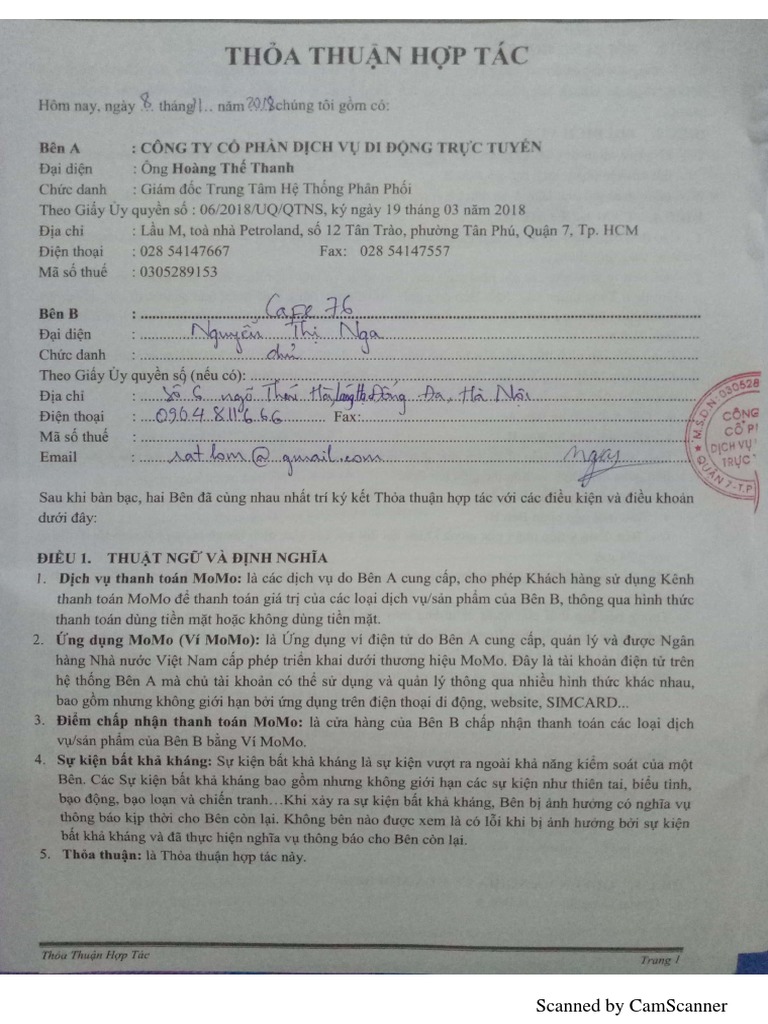 THỎA THUẬN HỢP TÁC
Hôm nay, ngày 8 tháng 11 năm 2018 chúng tôi gồm có:
Bên A : CÔNG TY CỔ PHẦN DỊCH VỤ DI ĐỘNG TRỰC TUYẾN
Đại diện : Ông Hoàng Thế Thanh
Chức danh : Giám đốc Trung Tâm Hệ Thống Phân Phối
Theo Giấy Ủy quyền số : 06/2018/UQ/QTNS, ký ngày 19 tháng 03 năm 2018
Địa chỉ : Lầu M, toà nhà Petroland, số 12 Tân Trào, phường Tân Phú, Quận 7, Tp. HCM
Điện thoại : 028 54147667 Fax: 028 54147557
Mã số thuế : 0305289153
Bên B : Cafe 76
Đại diện : Nguyễn Thị Nga
Chức danh : chủ
Theo Giấy Ủy quyền số (nếu có):
Địa chỉ : Số 6 ngõ Thái Hà, Đống Đa, Hà Nội
Điện thoại : 0904 811 666 Fax:
Mã số thuế :
Email : satlom@gmail.com Nga
M.S.D.N: 030528
CÔNG
CỔ P
DỊCH VỤ
TRỰC
QUẬN 7 - T.P
Sau khi bàn bạc, hai Bên đã cùng nhau nhất trí ký kết Thỏa thuận hợp tác với các điều kiện và điều khoản
dưới đây:
ĐIỀU 1. THUẬT NGỮ VÀ ĐỊNH NGHĨA
1. Dịch vụ thanh toán MoMo: là các dịch vụ do Bên A cung cấp, cho phép Khách hàng sử dụng Kênh
thanh toán MoMo để thanh toán giá trị của các loại dịch vụ/sản phẩm của Bên B, thông qua hình thức
thanh toán dùng tiền mặt hoặc không dùng tiền mặt.
2. Ứng dụng MoMo (Ví MoMo): là Ứng dụng ví điện tử do Bên A cung cấp, quản lý và được Ngân
hàng Nhà nước Việt Nam cấp phép triển khai dưới thương hiệu MoMo. Đây là tài khoản điện tử trên
hệ thống Bên A mà chủ tài khoản có thể sử dụng và quản lý thông qua nhiều hình thức khác nhau,
bao gồm nhưng không giới hạn bởi ứng dụng trên điện thoại di động, website, SIMCARD...
3. Điểm chấp nhận thanh toán MoMo: là cửa hàng của Bên B chấp nhận thanh toán các loại dịch
vụ/sản phẩm của Bên B bằng Ví MoMo.
4. Sự kiện bất khả kháng: Sự kiện bất khả kháng là sự kiện vượt ra ngoài khả năng kiểm soát của một
Bên. Các Sự kiện bất khả kháng bao gồm nhưng không giới hạn các sự kiện như thiên tai, biểu tình,
bạo động, bạo loạn và chiến tranh…Khi xảy ra sự kiện bất khả kháng, Bên bị ảnh hưởng có nghĩa vụ
thông báo kịp thời cho Bên còn lại. Không bên nào được xem là có lỗi khi bị ảnh hưởng bởi sự kiện
bất khả kháng và đã thực hiện nghĩa vụ thông báo cho Bên còn lại.
5. Thỏa thuận: là Thỏa thuận hợp tác này.
Thỏa Thuận Hợp Tác Trang 1
Scanned by CamScanner